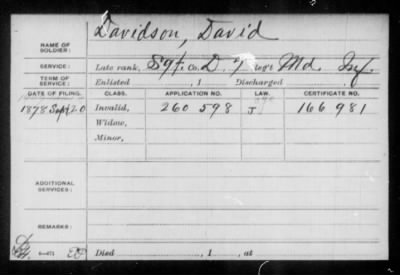 NAME OF SOLDIER: Davidson, David
SERVICE: Late rank, Sgt. Co. D. 7 Reg't Md. Inf.
TERM OF SERVICE: Enlisted , 1 Discharged , 1
DATE OF FILING. CLASS. APPLICATION NO. LAW. CERTIFICATE NO.
1878 Sept 20 Invalid, 260 598 J 166 981
Widow,
Minor,
ADDITIONAL SERVICES:
REMARKS:
6—671
Died , 1 , at